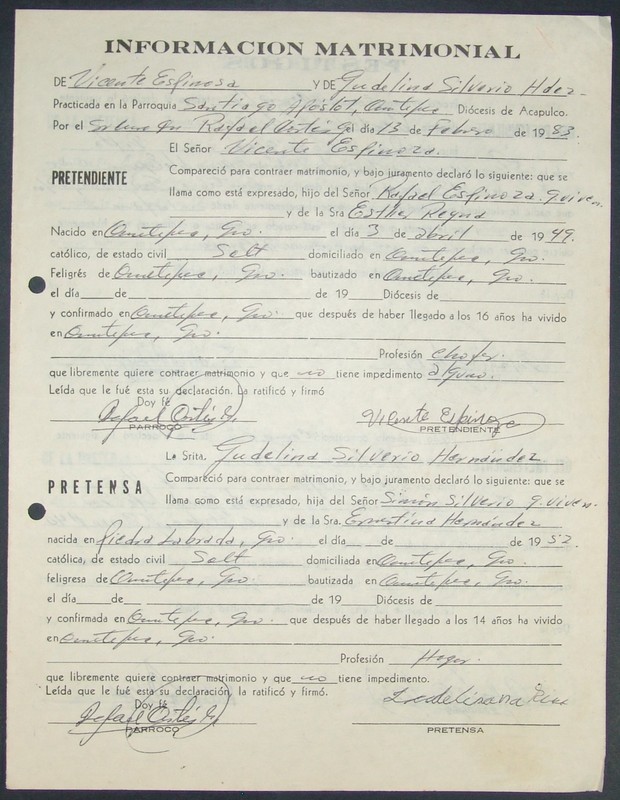 INFORMACION MATRIMONIAL
DE Vicente Espinosa Y DE Gudelina Silverio Hdez-
Practicada en la Parroquia Santiago Apóstol, Ometepec Diócesis de Acapulco.
Por el Rafael Cortés G el día 13 de Febrero de 1983.
El Señor Vicente Espinoza.
PRETENDIENTE
Compareció para contraer matrimonio, y bajo juramento declaró lo siguiente: que se
llama como está expresado, hijo del Señor Rafael Espinoza. q. viven.
y de la Sra Esther Reyna
Nacido en Ometepec, Gro. el día 3 de abril de 1949.
católico, de estado civil Solt domiciliado en Ometepec, Gro.
Feligrés de Ometepec, Gro. bautizado en Ometepec, Gro.
el día de de 19 Diócesis de
y confirmado en Ometepec, Gro. que después de haber llegado a los 16 años ha vivido
en Ometepec, Gro.
Profesión chofer.
que libremente quiere contraer matrimonio y que no tiene impedimento alguno.
Leída que le fué esta su declaración. La ratificó y firmó
Doy fé
Rafael Cortés G. Vicente Espinoza
PARROCO PRETENDIENTE
La Srita. Gudelina Silverio Hernández
PRETENSA
Compareció para contraer matrimonio, y bajo juramento declaró lo siguiente: que se
llama como está expresado, hija del Señor Simón Silverio q. viven.
y de la Sra. Ernestina Hernández
nacida en Piedra Labrada, Gro. el día de de 1952
católica, de estado civil Solt domiciliada en Ometepec, Gro.
feligresa de Ometepec, Gro. bautizada en Ometepec, Gro.
el día de de 19 Diócesis de
y confirmada en Ometepec, Gro. que después de haber llegado a los 14 años ha vivido
en Ometepec, Gro.
Profesión Hogar.
que libremente quiere contraer matrimonio y que no tiene impedimento.
Leída que le fué esta su declaración, la ratificó y firmó.
Doy fé
Rafael Cortés G.
PARROCO PRETENSA